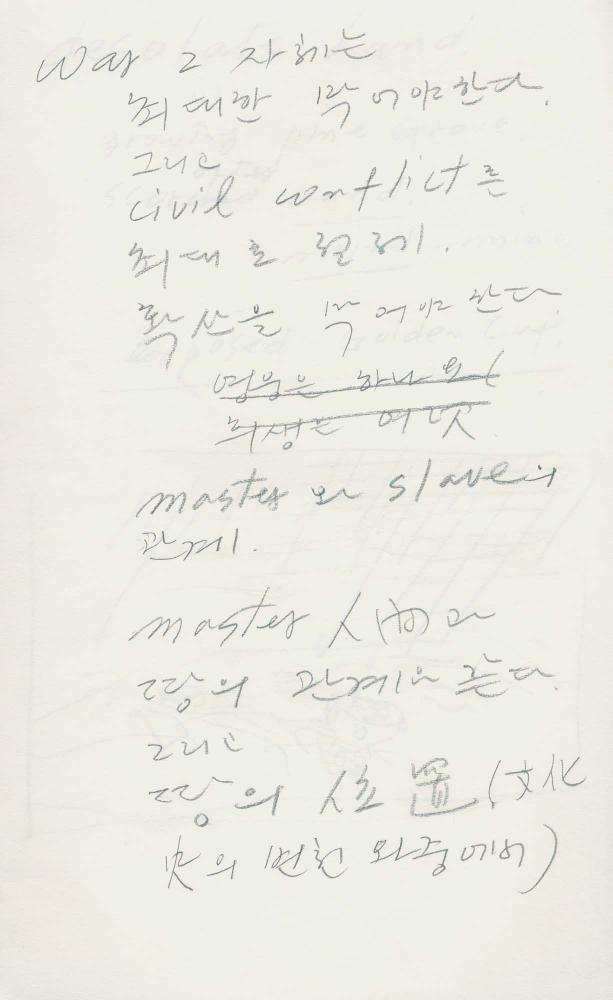 war 그 자체는
최대한 막어야한다.
그리고
civil conflict 를
최대로
확산을 막어야한다
영웅은 하나요
희생은 여덧
master 와 slave의
관계.
master 人間과
땅의 관계와 같다.
그리고
땅의 位置 (文化
史의 변천 와중에서)